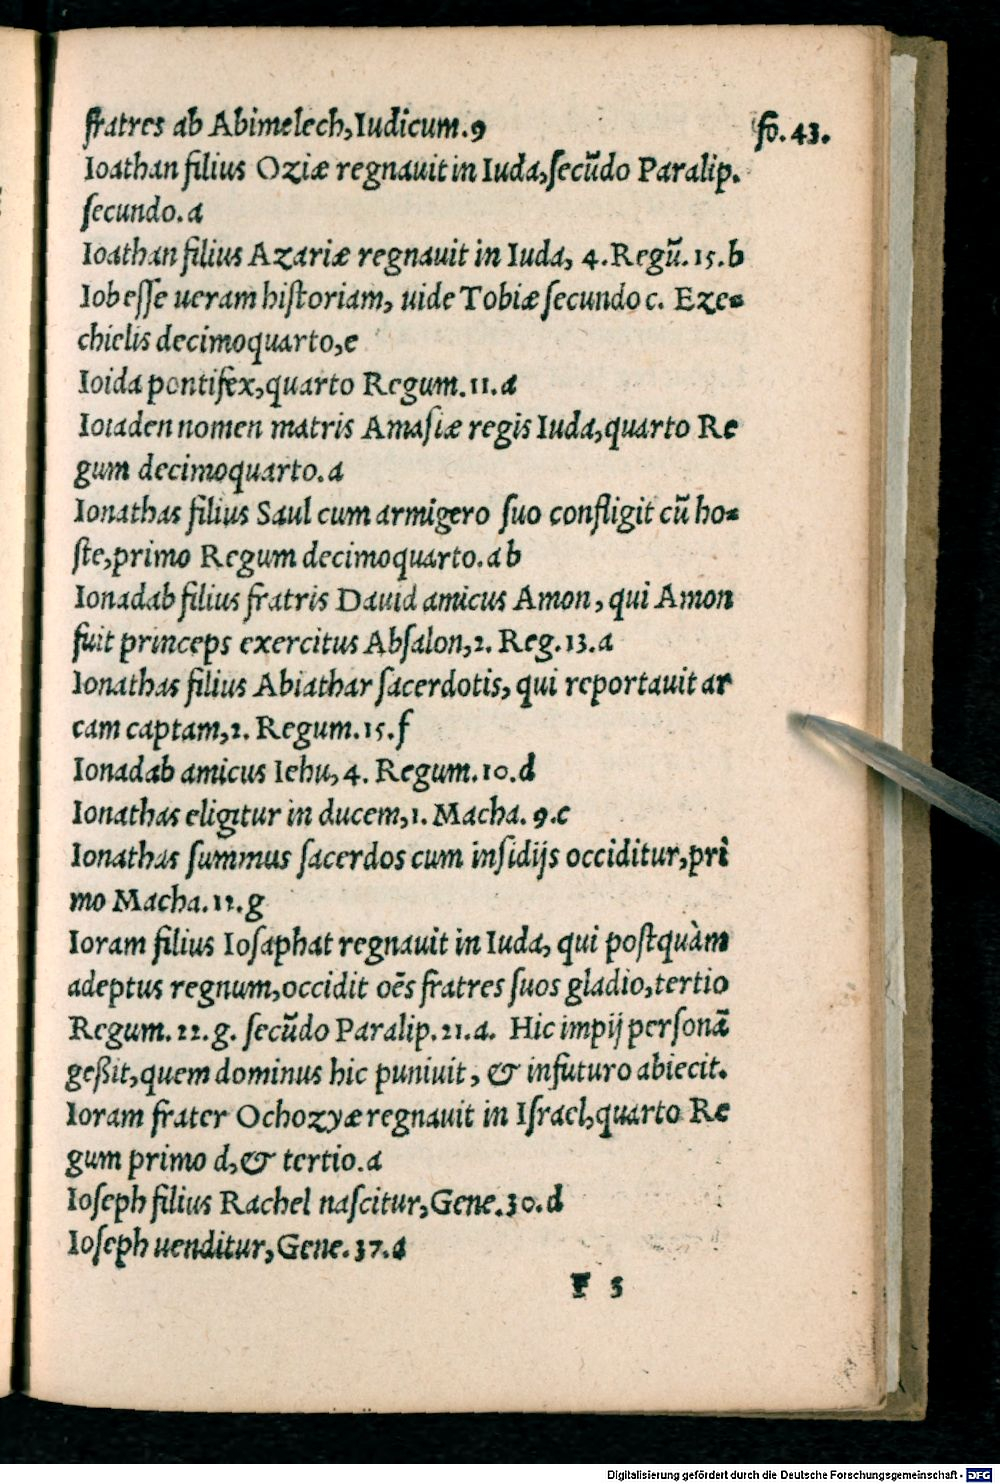 fratres ab Abimelech, Iudicum.9
fo.43.
Ioathan filius Oziæ regnauit in Iuda, ſecũdo Paralip.
ſecundo.a
Ioathan filius Azariæ regnauit in Iuda, 4.Regũ.15.b
Iob eſſe ueram hiſtoriam, uide Tobiæ ſecundo c. Eze-
chielis decimoquarto,e
Ioida pontifex,quarto Regum.11.a
Ioiaden nomen matris Amaſiæ regis Iuda,quarto Re
gum decimoquarto.a
Ionathas filius Saul cum armigero ſuo confligit cũ ho-
ſte,primo Regum decimoquarto.ab
Ionadab filius fratris Dauid amicus Amon, qui Amon
fuit princeps exercitus Abſalon,2. Reg.13.a
Ionathas filius Abiathar ſacerdotis, qui reportauit ar
cam captam,2. Regum.15.f
Ionadab amicus Iehu,4. Regum.10.d
Ionathas eligitur in ducem,1. Macha. 9.c
Ionathas ſummus ſacerdos cum inſidijs occiditur,pri
mo Macha.12.g
Ioram filius Ioſaphat regnauit in Iuda, qui poſtquàm
adeptus regnum,occidit oẽs fratres ſuos gladio,tertio
Regum.22.g. ſecũdo Paralip.21.a. Hic impij perſonã
geßit,quem dominus hic puniuit, & infuturo abiecit.
Ioram frater Ochozyæ regnauit in Iſrael,quarto Re
gum primo d,& tertio.a
Ioſeph filius Rachel naſcitur,Gene.30.d
Ioſeph uenditur,Gene.37.a
F 3
Digitalisierung gefördert durch die Deutsche Forschungsgemeinschaft - DFG